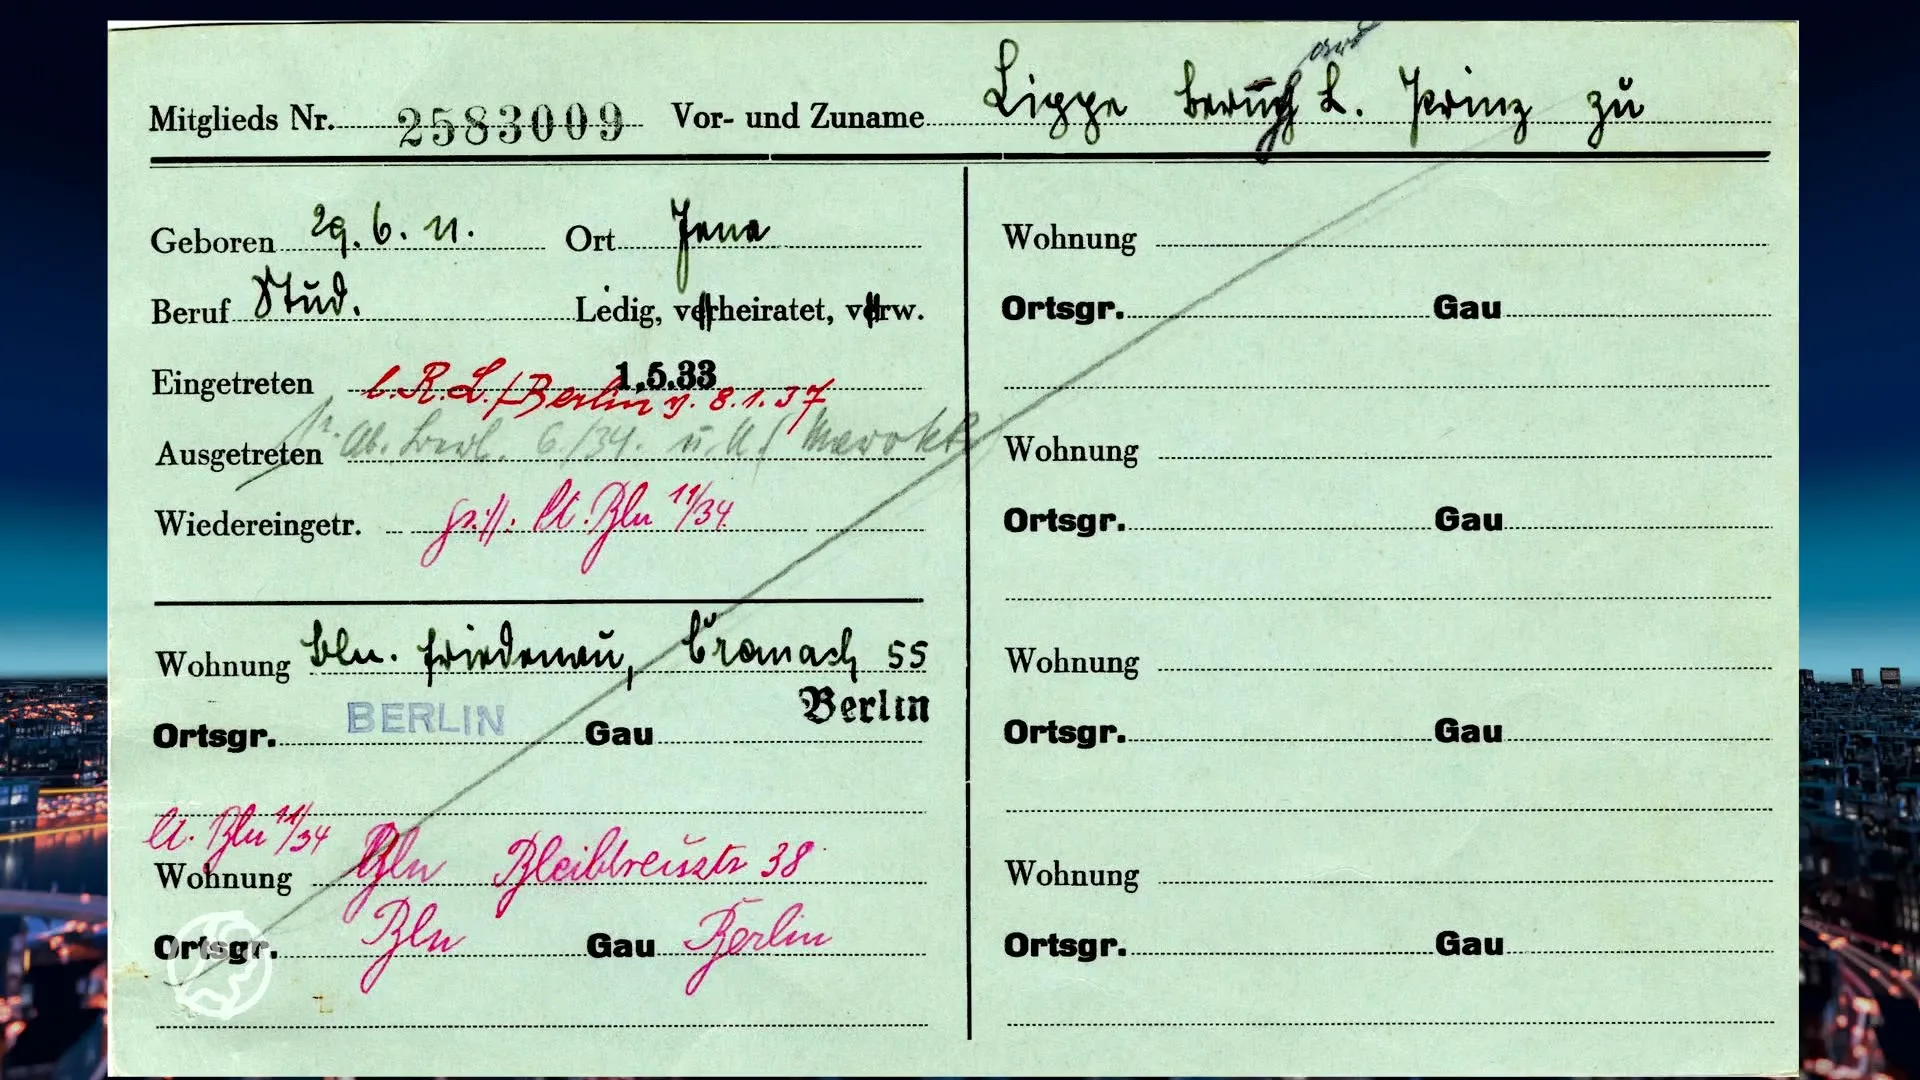 Mitglieds Nr. 2583009 Vor- und Zuname Lippe L. Prinz zu
Geboren 29. 6. 11. Ort Jena
Beruf Stud. Ledig, verheiratet, verw.
Eingetreten 1.5.33
l. R. L./Berlin v. 8.1.37
Ausgetreten 6./34. Marokko
Wiedereingetr. Bln 11/34
Wohnung Bln. Friedenau, Cranach 55
Ortsgr. BERLIN Gau Berlin
Bln 11/34
Wohnung Bln Bleibtreustr 38
Ortsgr. Bln Gau Berlin
Wohnung
Ortsgr. Gau
Wohnung
Ortsgr. Gau
Wohnung
Ortsgr. Gau
Wohnung
Ortsgr. Gau